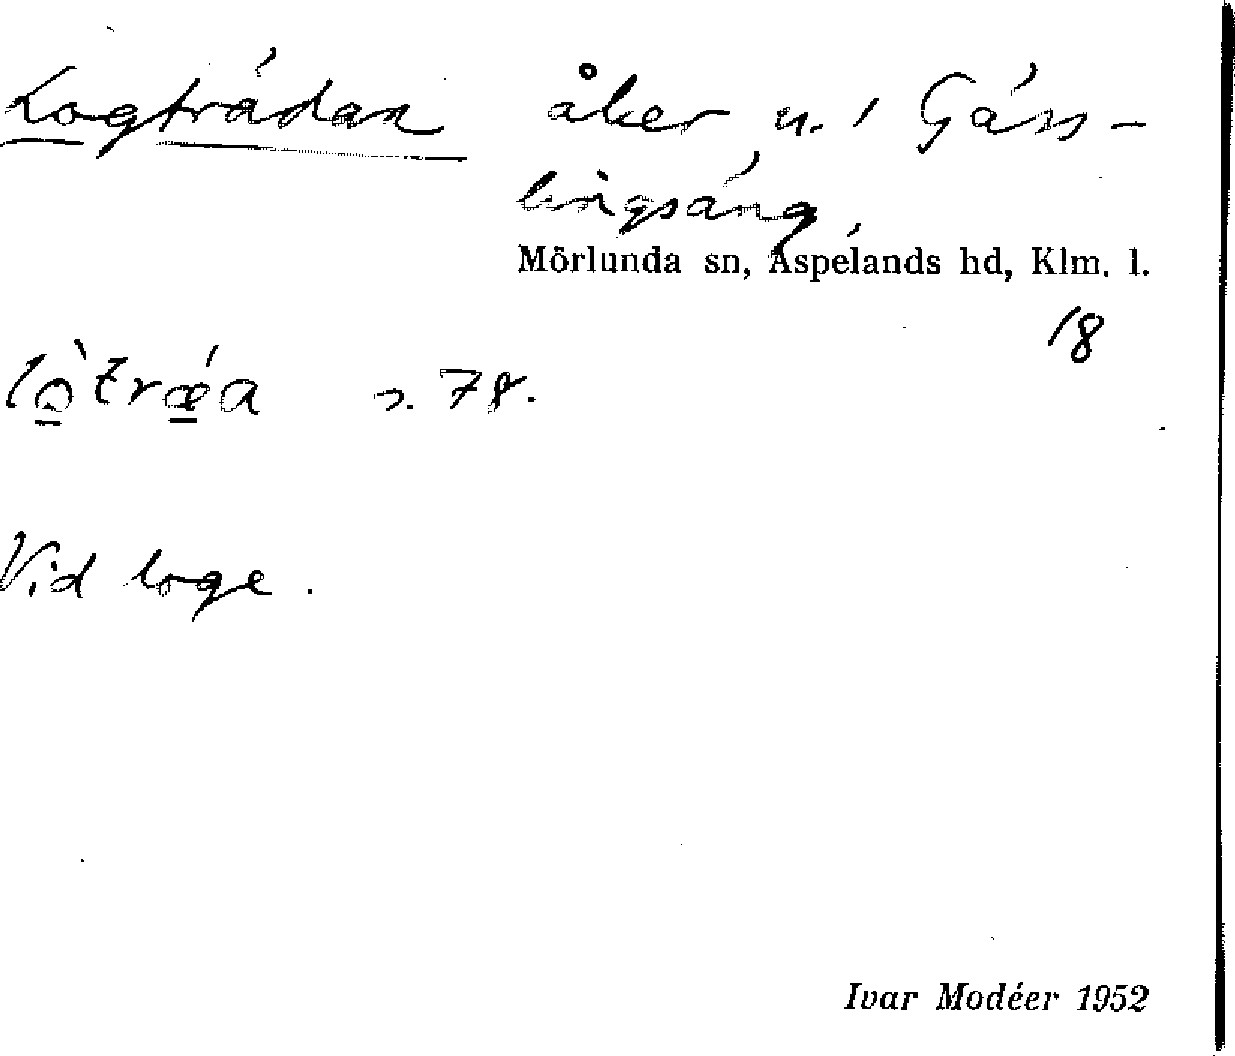 Logträdan åker u. Gäss-
lingsäng,
Mörlunda sn, Aspelands hd, Klm. l.
18
lòtrǽa s. 78.
Vid loge.
Ivar Modéer 1952